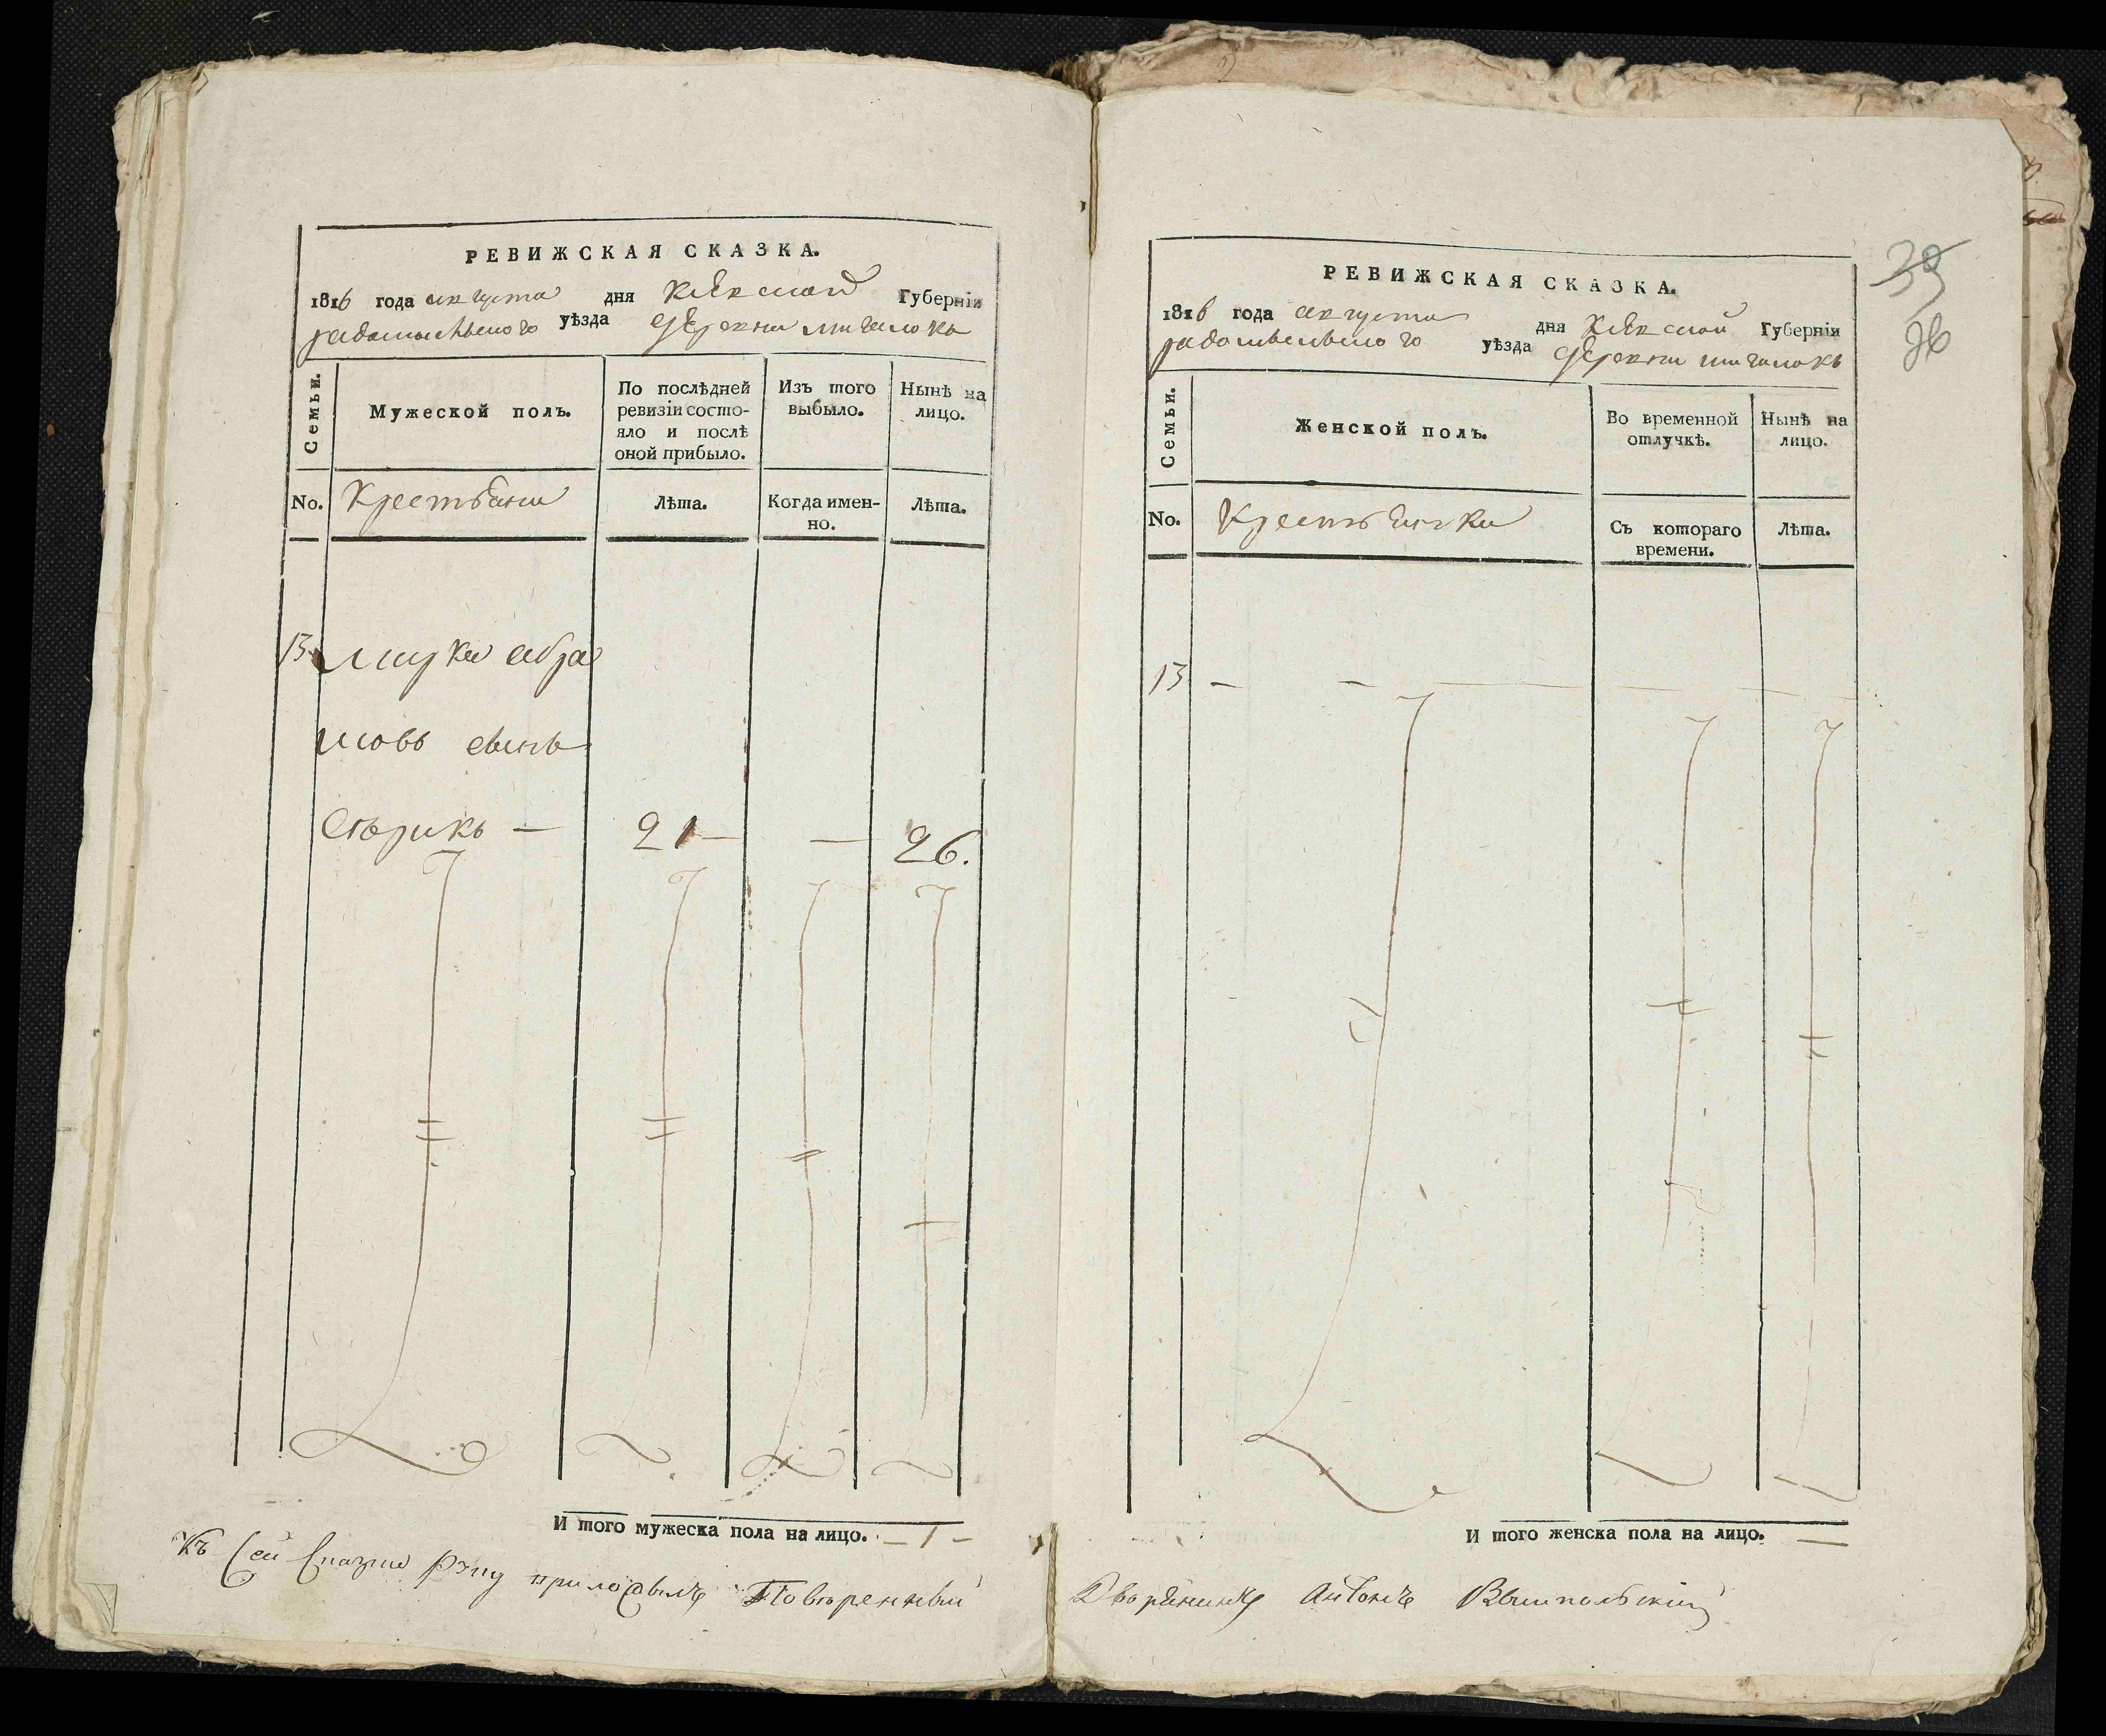 РЕВИЖСКАЯ СКАЗКА.
1816 года августа дня Кіевской Губерніи
радомысльского уѣзда деревни мигалокъ
Семьи.
Мужеской полъ.
По послѣдней ревизіи состояло и послѣ оной прибыло.
Изъ того выбыло.
Нынѣ на лицо.
No. Крестьяни
Лѣта.
Когда именно.
Лѣта.
13
мовъ сынъ
21 — — 26.
И того мужеска пола на лицо. — 1 —
Къ сей сказки руку приложылъ Повѣренный
РЕВИЖСКАЯ СКАЗКА.
1816 года августа дня Кіевской Губерніи
радомысльского уѣзда деревни мигалокъ
Семьи.
Женской полъ.
Во временной отлучкѣ.
Нынѣ на лицо.
No. Крестьянки
Съ котораго времени.
Лѣта.
13 — —
И того женска пола на лицо. —
Дворянинъ Антонъ Вышпольский
39
26